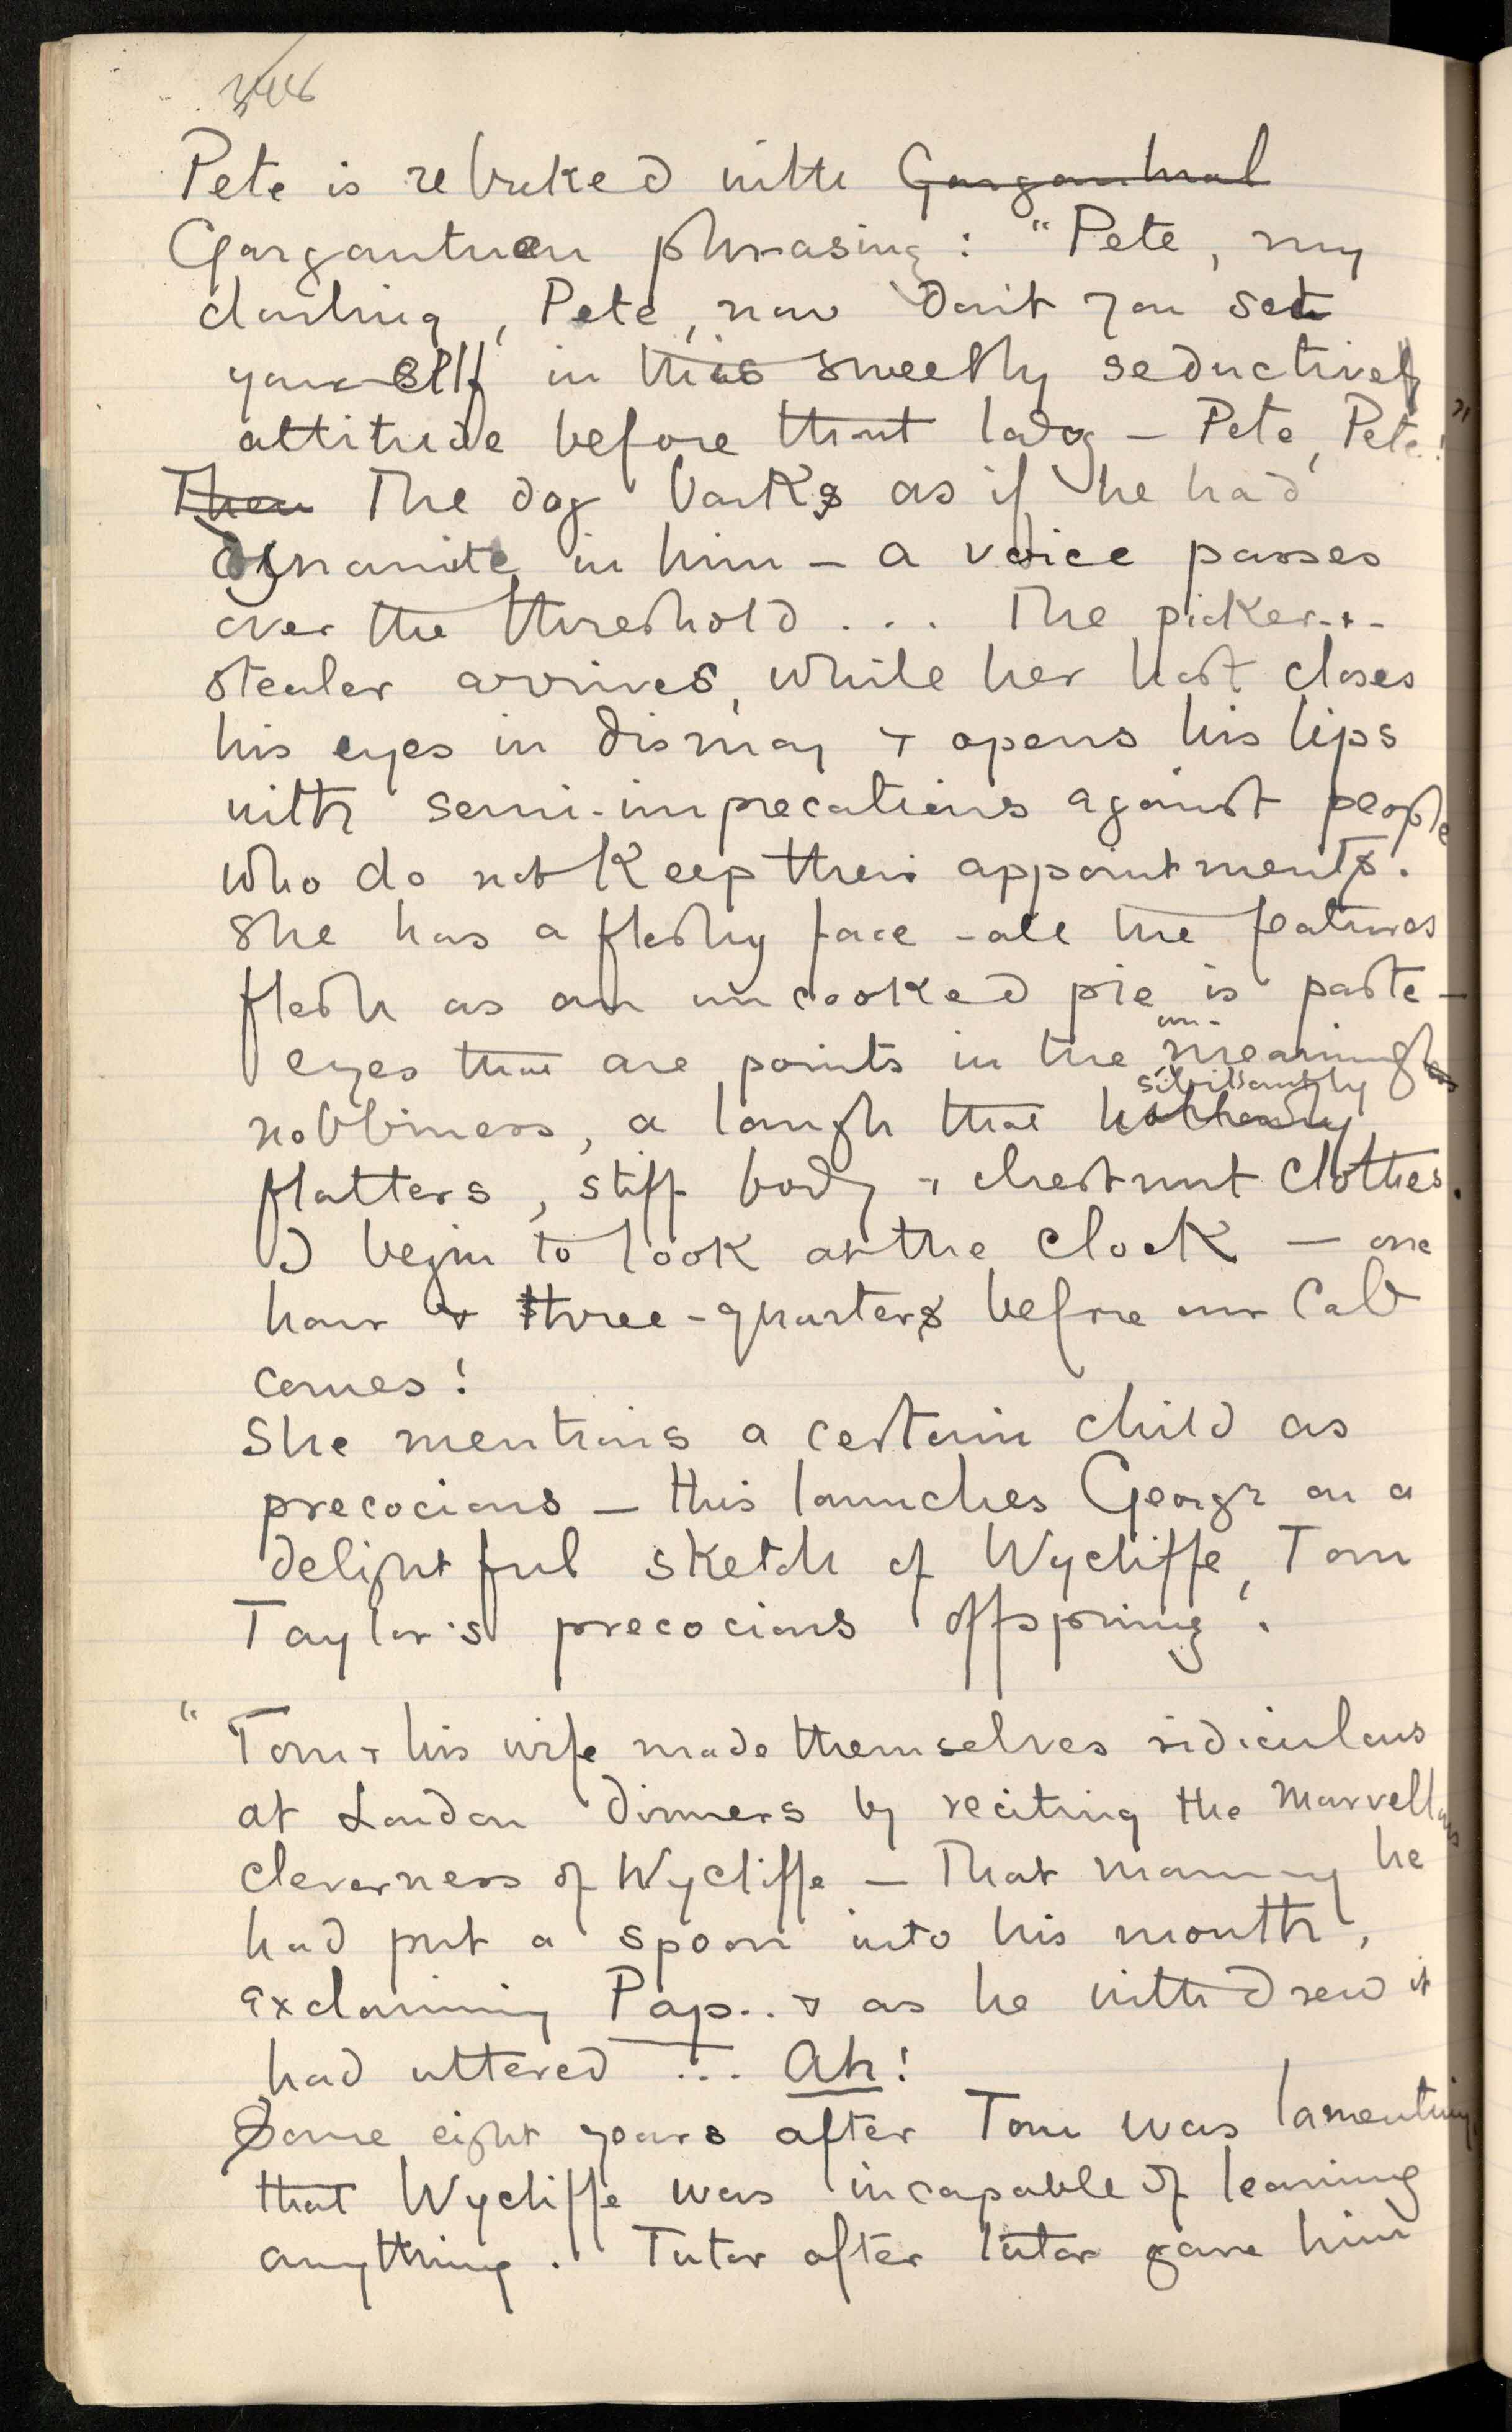 Pete is rebuked with Gargantual
Gargantuan phrasing: "Pete, my
darling, Pete, now don't you set
yourself in this sweetly seductive
attitude before that lady – Pete, Pete!"
Then The dog barks as if he had
dynamite in him – a voice passes
over the threshold ... The picker-+-
stealer arrives, while her host closes
his eyes in dismay + opens his lips
with semi-imprecations against people
who do not keep their appointments.
She has a fleshy face – all the features
flesh as an uncooked pie is paste –
eyes that are points in the un-meaning
sibilantly
nobbiness, a laugh that
flatters, stiff body + chestnut clothes.
I begin to look at the clock – one
hour + three-quarters before our cab
comes!
She mentions a certain child as
precocious – this launches George on a
delightful sketch of Wycliffe, Tom
Taylor's precocious offspring.
"Tom + his wife made themselves ridiculous
at London dinners by reciting the marvellous
cleverness of Wycliffe – That morning he
had put a spoon into his mouth,
exclaiming Pap.. + as he withdrew it
had uttered ... Ah!
Some eight years after Tom was lamenting
that Wycliffe was incapable of learning
anything. Tutor after tutor gave him